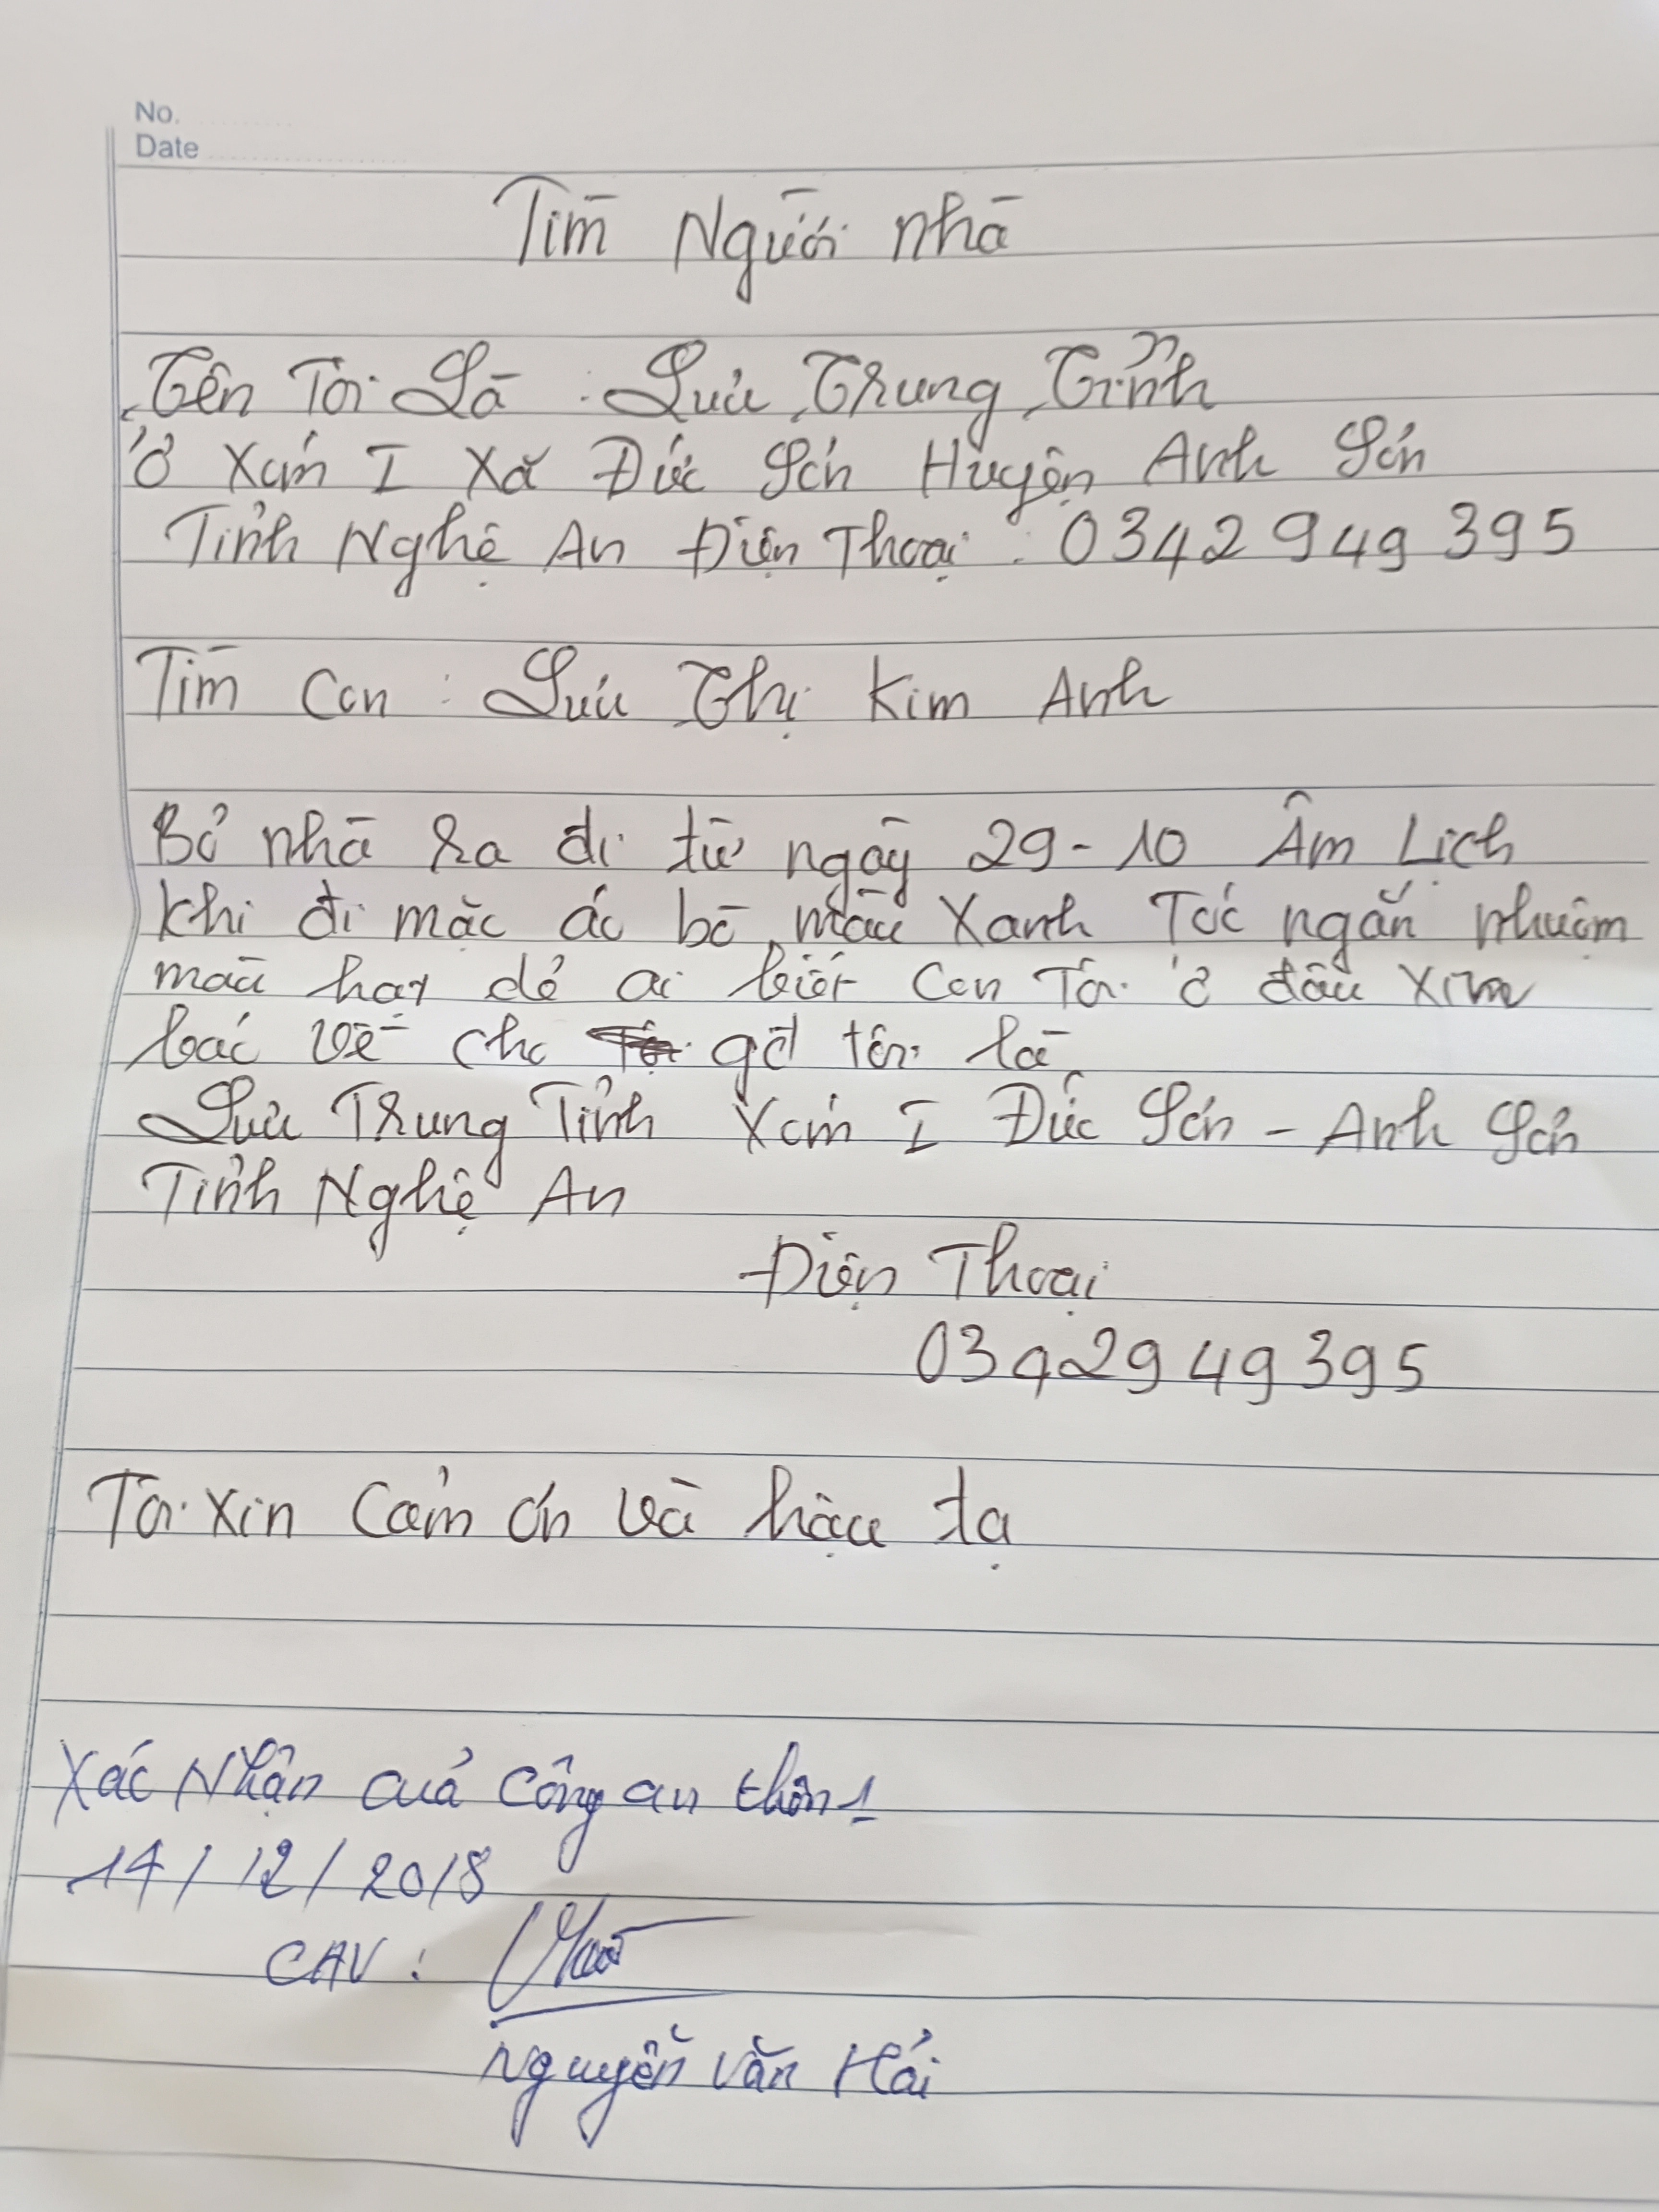 No.
Date
Tìm Người nhà
Tên Tôi Là : Lưu Trung Tỉnh
Ở Xóm I Xã Đức Sơn Huyện Anh Sơn
Tỉnh Nghệ An Điện Thoại : 0342949395
Tìm Con : Lưu Thị Kim Anh
Bỏ nhà ra đi từ ngày 29-10 Âm Lịch
khi đi mặc áo bò màu Xanh Tóc ngắn nhuộm
màu hạt dẻ ai biết Con Tôi ở đâu Xin
báo về cho gđ tôi là
Lưu Trung Tỉnh Xóm I Đức Sơn - Anh Sơn
Tỉnh Nghệ An
Điện Thoại
0342949395
Tôi Xin Cảm ơn và hậu tạ
Xác Nhận của Công an thôn 1
14/12/2018
CAV :
Nguyễn Văn Hải